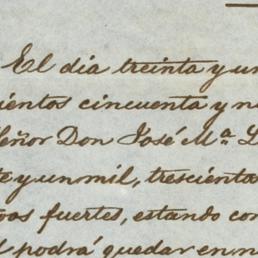 El día treinta y un
cientos cincuenta y n
Señor Don José Mª L
te y un mil, trescienta
sos fuertes, estando con
l podrá quedar en n